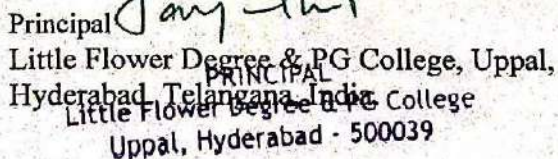 Principal
Little Flower Degree & PG College, Uppal,
PRINCIPAL
Hyderabad, Telangana, India.
Little Flower Degree & PG College
Uppal, Hyderabad - 500039